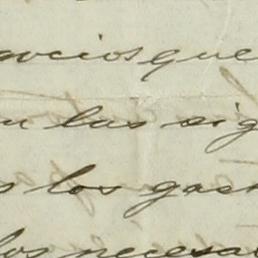 gocios que
en las sig
s los gas
los necesa